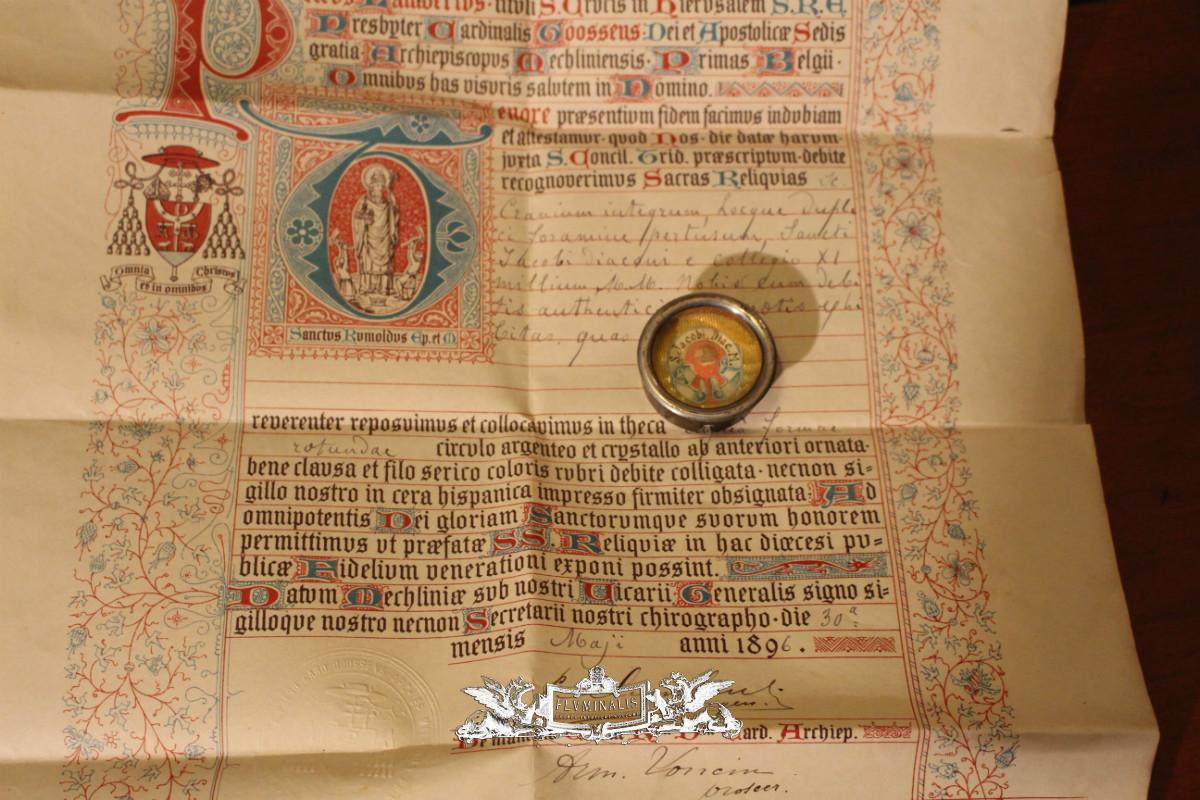 Lambertus · tituli S. Crucis in Hierusalem S. R. E.
Presbyter Cardinalis Goossens · Dei et Apostolicæ Sedis
gratia Archiepiscopus Mechliniensis · Primas Belgii ·
Omnibus has visuris salutem in Domino.
Tenore præsentium fidem facimus indubiam
et attestamur · quod Nos · die datæ harum ·
juxta S. Concil. Trid. præscriptum · debite
recognoverimus Sacras Reliquias Sc
Cranium integrum, hocque dupli
ci foramine pertusum, Sancti
Jacobi diaconi e collegio XI
millium M. M. Nobis cum debi
tis authenti
bitas, quas
Omnia Christus
et in omnibus
Sanctus Rumoldus Ep. et M
S. Jacobi Diac. M.
reverenter reposuimus et collocavimus in theca formae
rotundae circulo argenteo et crystallo ab anteriori ornata ·
bene clausa et filo serico coloris rubri debite colligata · necnon si=
gillo nostro in cera hispanica impresso firmiter obsignata: Ad
omnipotentis Dei gloriam Sanctorumque suorum honorem
permittimus ut præfatæ SS. Reliquiæ in hac diœcesi pu=
blicæ Fidelium venerationi exponi possint.
Datum Mechliniæ sub nostri Vicarii Generalis signo si=
gilloque nostro necnon Secretarii nostri chirographo · die 30ª
mensis Maji anni 1896.
FLVMINALIS
Card. Archiep.